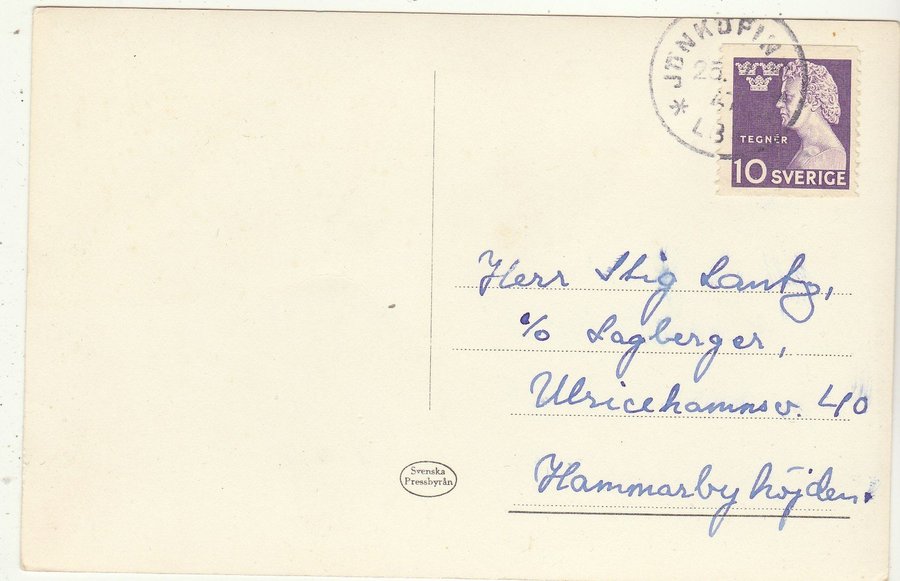 JÖNKÖPIN
25.
47
LB
TEGNÉR
10 SVERIGE
Herr Stig
c/o Lagberger,
Ulricehamnsv. 40
Hammarbyhöjden.
Svenska
Pressbyrån